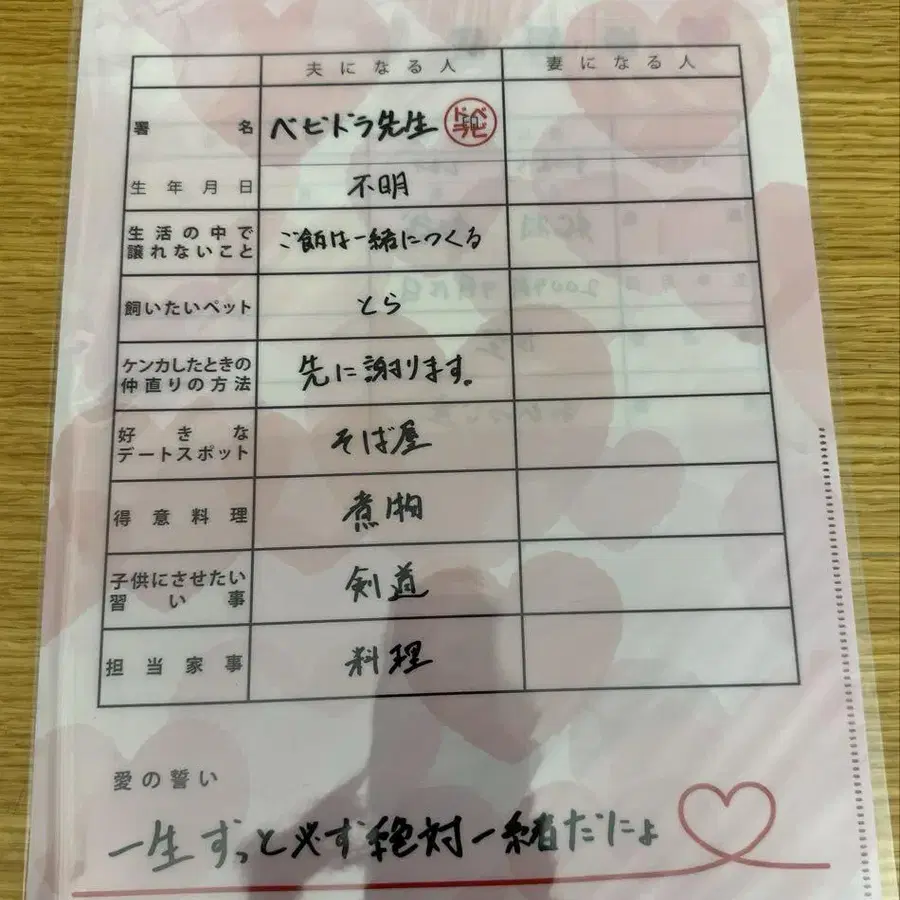 夫になる人 妻になる人
署名 ベビドラ先生 印 ベビドラ
生年月日 不明
生活の中で
譲れないこと ご飯は一緒につくる
飼いたいペット とら
ケンカしたときの
仲直りの方法 先に謝ります。
好きな
デートスポット そば屋
得意料理 煮物
子供にさせたい
習い事 剣道
担当家事 料理
愛の誓い
一生ずっと必ず絶対一緒だにょ